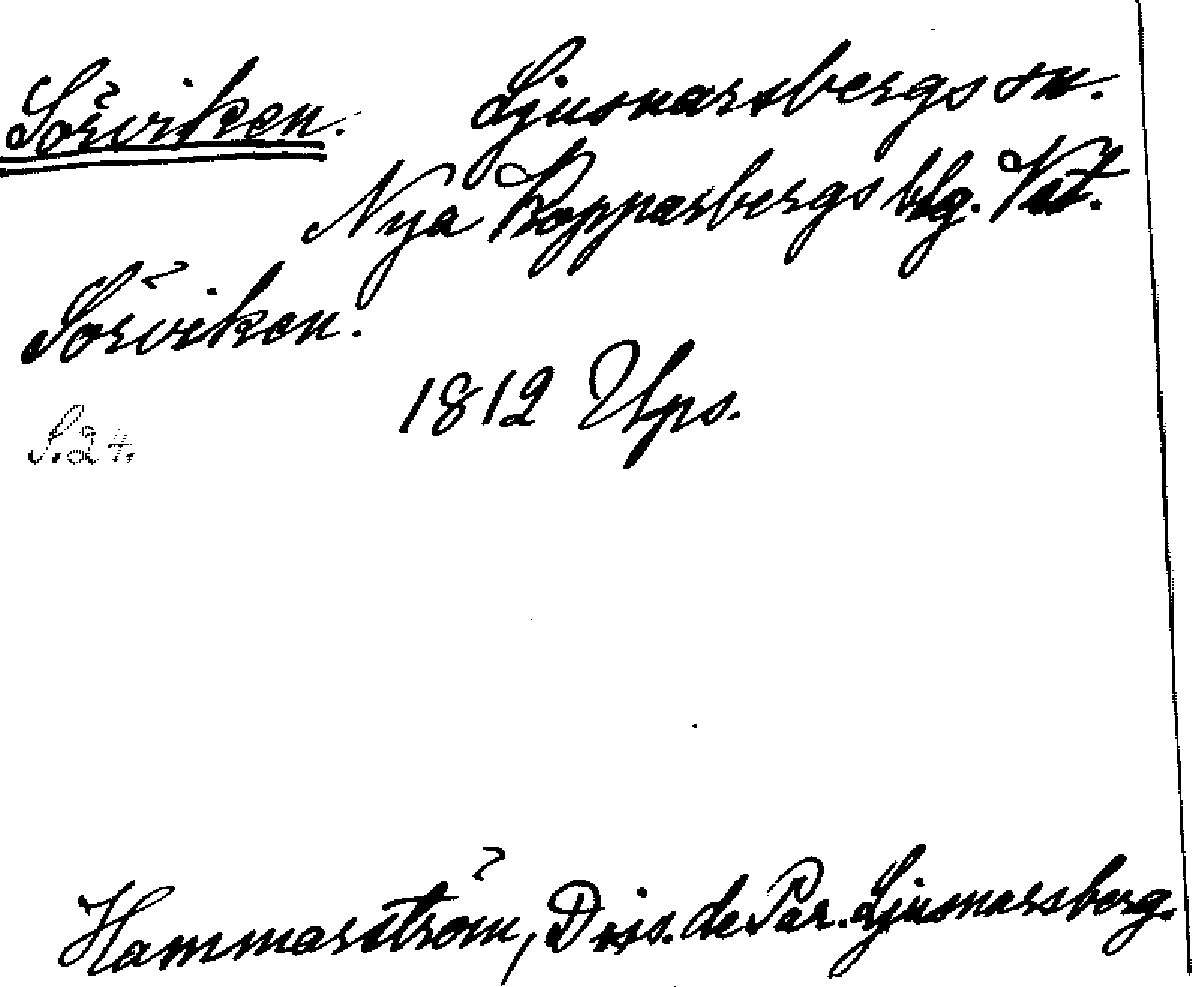 Sörviken. Ljusnarsbergs sn.
Nya Kopparbergs blg. Vst.
Sörviken.
1812 Ups.
S. 24.
Hammarström, Diss. de Par. Ljusnarsberg.